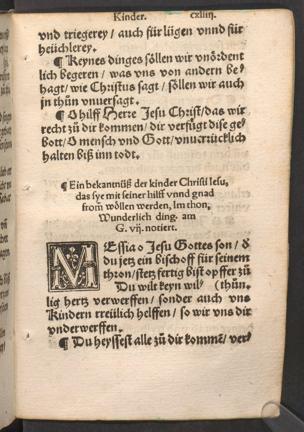 Kinder. cxliiij.
vnd triegerey / auch für lügen vnnd für
heüchlerey.
¶ Keynes dinges söllen wir vnördent
lich begeren / was vns von andern be⸗
hagt / wie Christus sagt / söllen wir auch
jn thůn vnuersagt.
¶ O hilff Herre Jesu Christ / das wir
recht zů dir kommen / dir verfügt dise ge⸗
bott / O mensch vnd Gott / vnuerrücklich
halten biß inn todt.
¶ Ein bekanntnüß der kinder Christi Iesu,
das sye mit seiner hilff vnnd gnad
from̃ wöllen werden, Im thon,
Wunderlich ding. am
G. vij. notiert.
MEssia o Jesu Gottes son / d
du jetz ein bischoff für seinem
thron / stetz fertig bist opffer zů
Du wilt keyn wil⸗ (thůn,
lig hertz verwerffen / sonder auch vns
Kindern treülich helffen / so wir vns dir
vnderwerffen.
¶ Du heyssest alle zů dir kommẽ / ver⸗